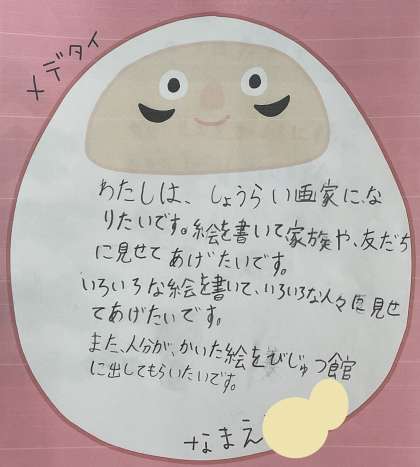 メデタイ
わたしは、しょうらい画家にな
りたいです。絵を書いて家族や、友だち
に見せてあげたいです。
いろいろな絵を書いて、いろいろな人々に見せ
てあげたいです。
また、人分が、かいた絵をびじゅつ館
に出してもらいたいです。
なまえ